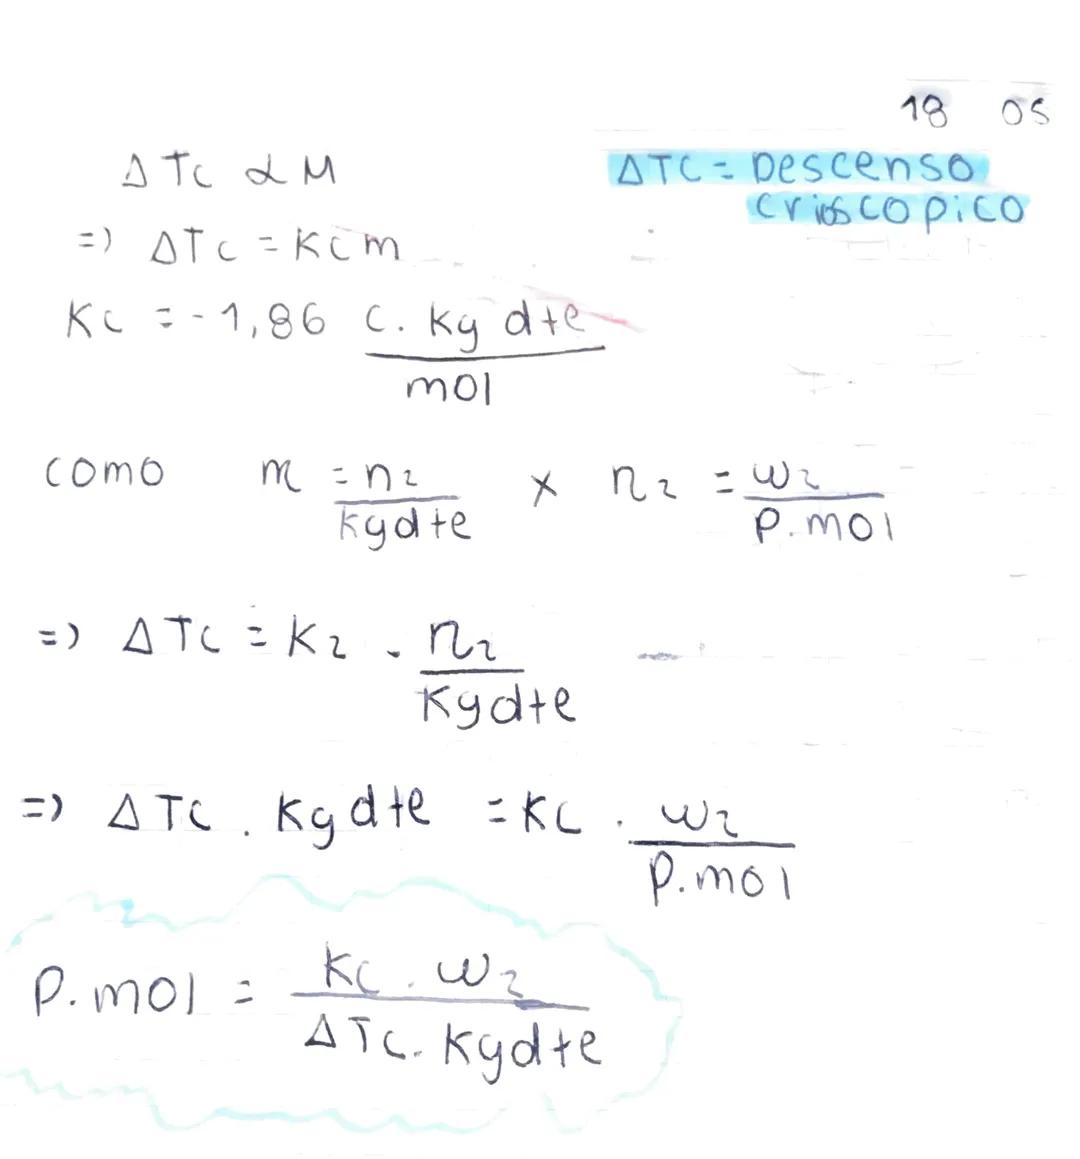 18 05
ΔTc α M
ΔTC = Descenso
crioscopico
=> ΔTc = Kc m
Kc = -1,86 C. Kg dte / mol
como m = n2 / Kgdte x n2 = w2 / P.mol
=> ΔTc = K2 . n2 / Kgdte
=> ΔTc . Kg dte = Kc . w2 / P.mol
P.mol = Kc . w2 / ΔTc. Kgdte